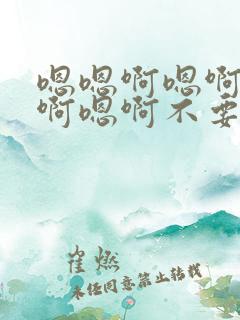 嗯嗯啊嗯啊
啊嗯啊不要
崔燃
未经同意禁止转载